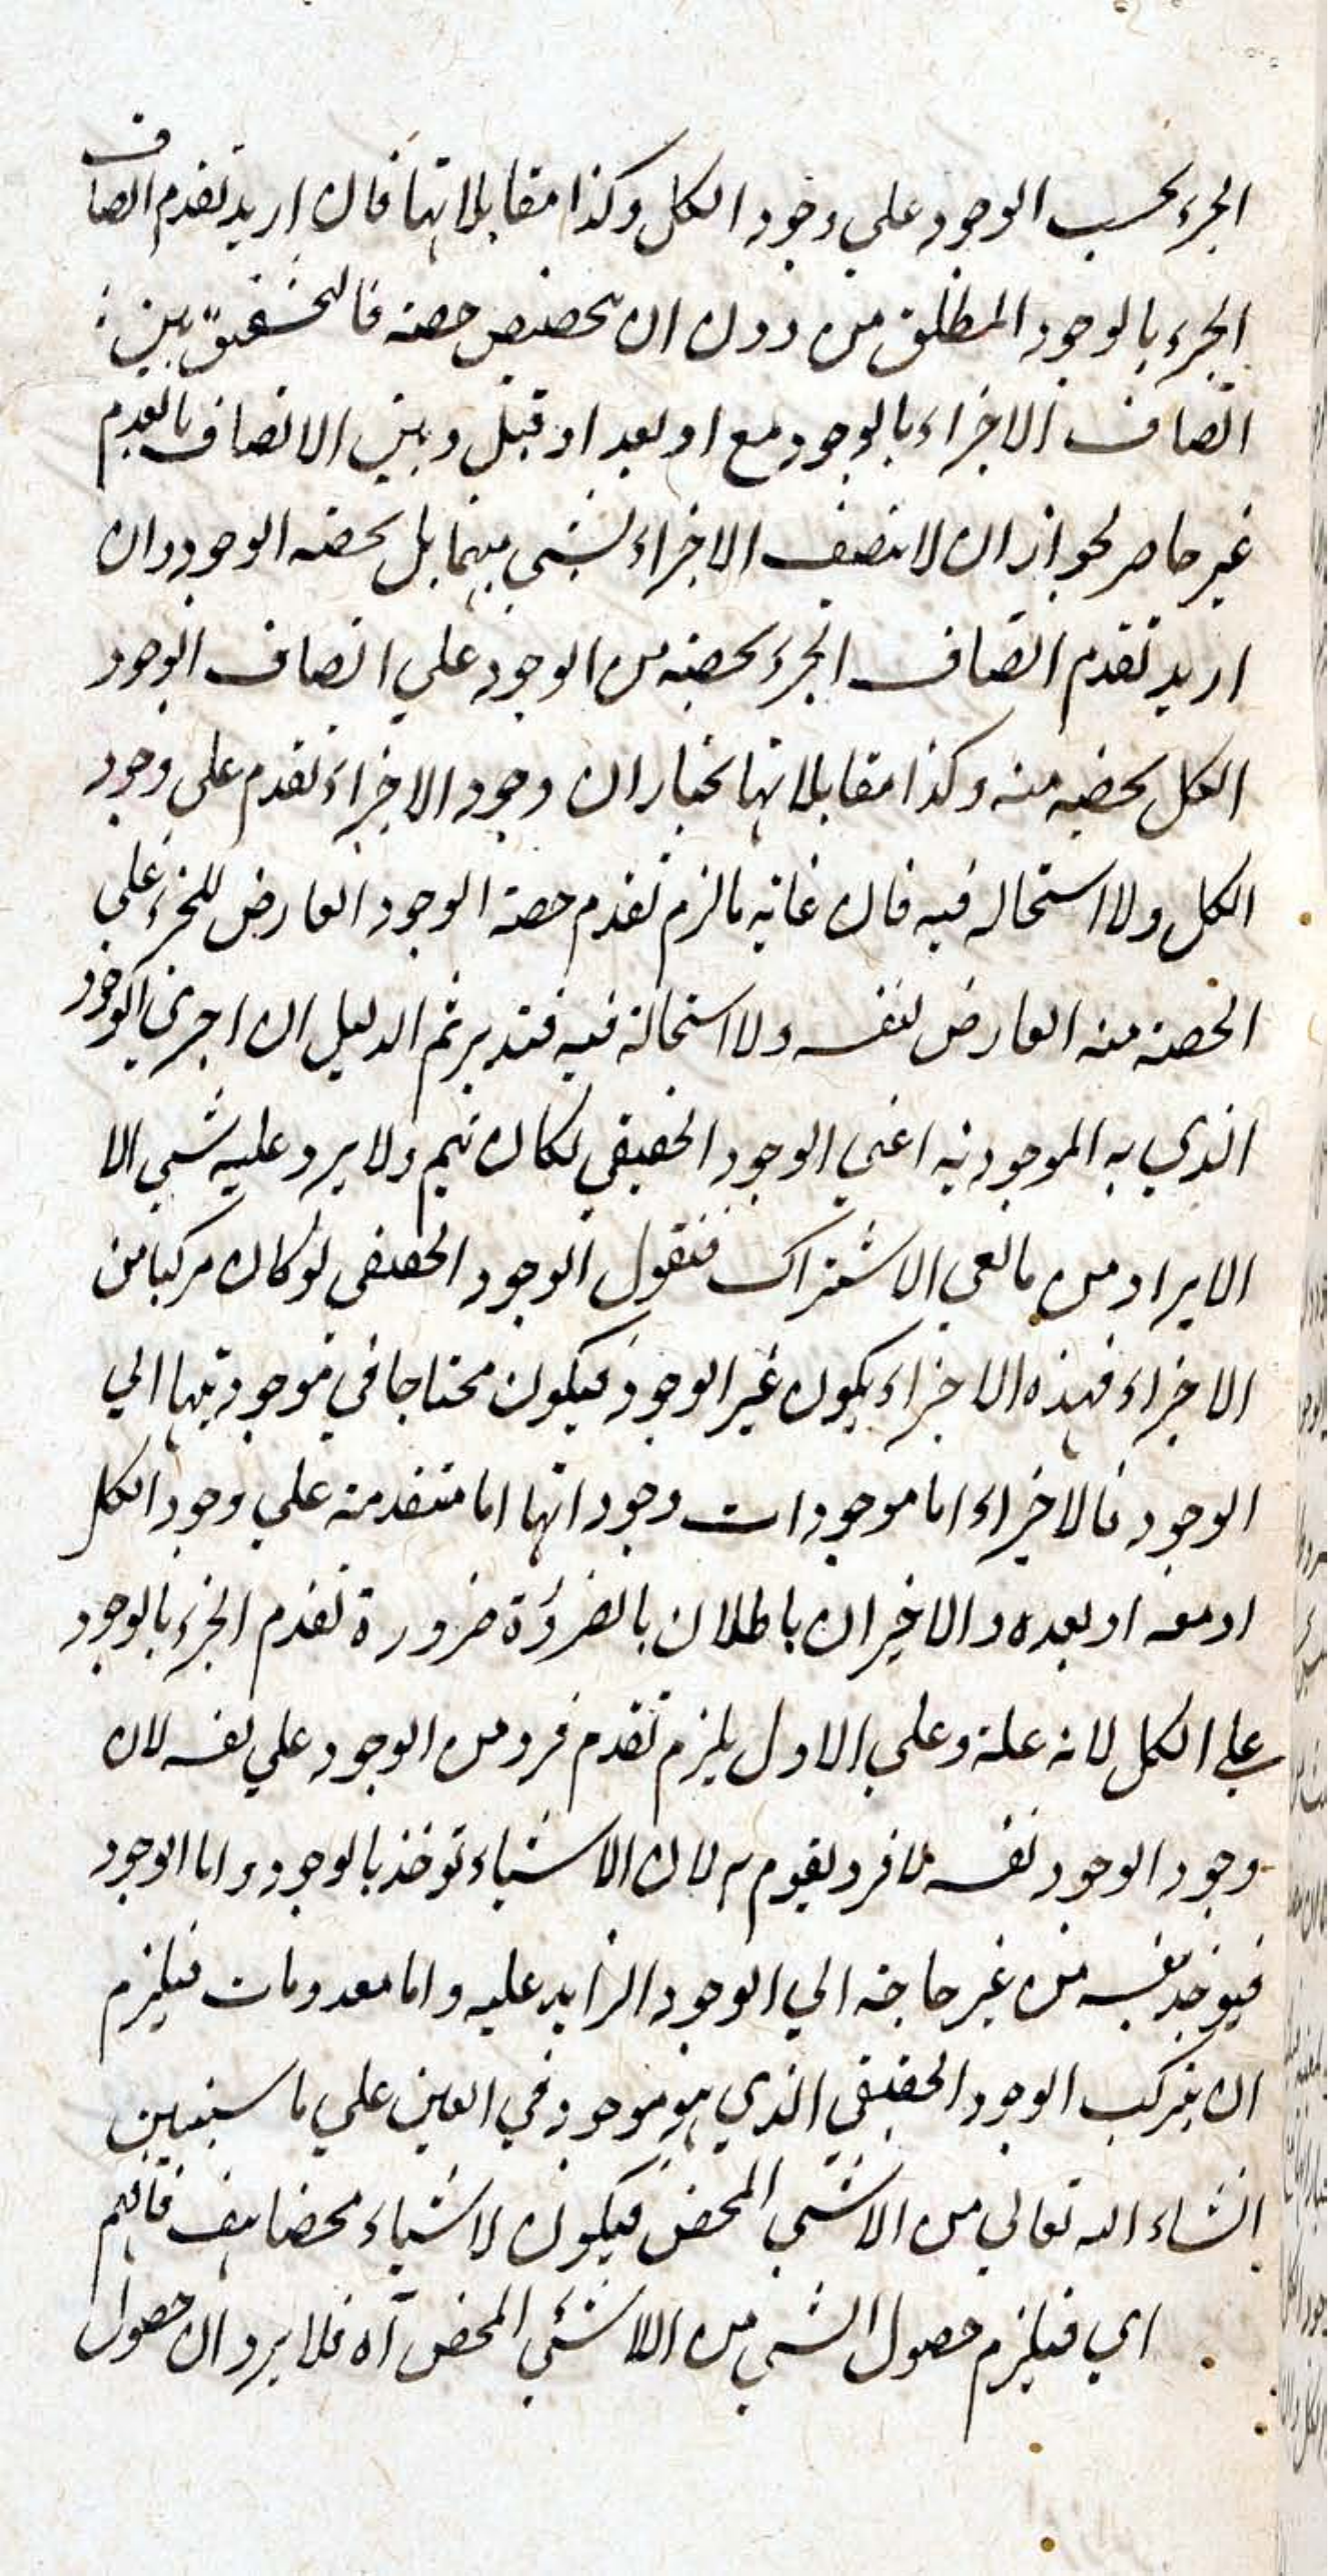 الجزء بحسب الوجود على وجود الكل وكذا مقابلاتها فان اريد تقدم اتصاف
الجزء بالوجود المطلق من دون ان تخصيص حصة فالتحقيق بين
اتصاف الاجزاء بالوجود مع او بعد او قبل وبين الاتصاف بالعدم
غير حاصر لجواز ان لا تتصف الاجزاء بشي منهما بل بحصة الوجود وان
اريد تقدم اتصاف الجزء بحصة من الوجود علي اتصاف الوجود
الكل بحصة منه وكذا مقابلاتها نختار ان وجود الاجزاء تقدم على وجود
الكل ولا استحاله فيه فان غاية ما لزم تقدم حصة الوجود العارض للجزء على
الحصة منه العارض لنفسه ولا استحالة فيه فتدبر ثم الدليل ان اجرى في الوجود
الذي به الموجودية اعني الوجود الحقيقي لكان يتم ولا يرد عليه شي الا
الايراد من مانعي الاشتراك فنقول الوجود الحقيقي لو كان مركبا من
الاجزاء فهذه الاجزاء يكون غير الوجود فيكون محتاجا في موجوديتها الي
الوجود فالاجزاء اما موجودات وجوداتها اما متقدمة علي وجود الكل
او معه او بعده والاخيران باطلان بالضرورة ضرورة تقدم الجزء بالوجود
على الكل لانه علة وعلي الاول يلزم تقدم فرد من الوجود علي نفسه لان
وجود الوجود نفسه لا فرد يقوم به لان الاشياء توخذ بالوجود واما الوجود
فيوخذ بنفسه من غير حاجة الي الوجود الزايد عليه واما معدومات فيلزم
ان يتركب الوجود الحقيقي الذي هو موجود في العين علي ما سيتبين
انشاء الله تعالي من الاشي المحض فيكون لا شياء محضا هف فافهم
اي فيلزم حصول الشي من اللا شئي المحض آه فلا يرد ان حصول